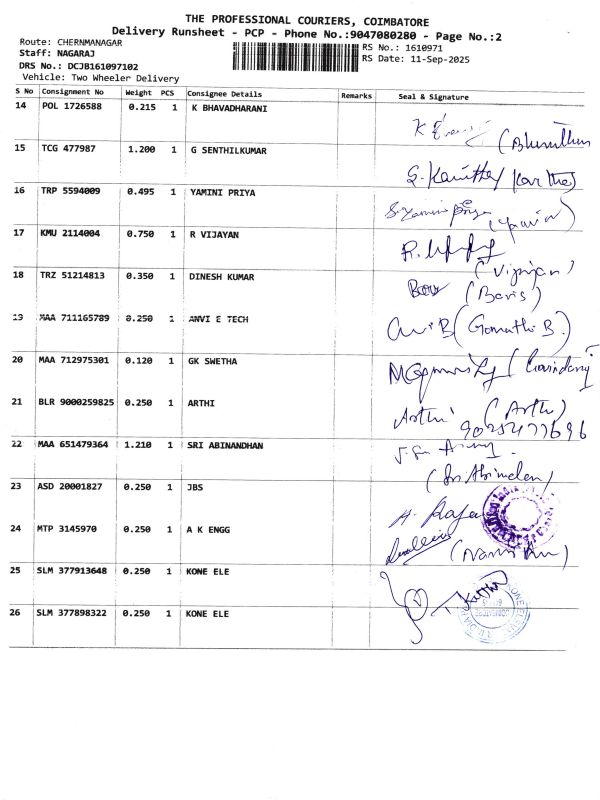 THE PROFESSIONAL COURIERS, COIMBATORE
Delivery Runsheet - PCP - Phone No.:9047080280 - Page No.:2
Route: CHERNMANAGAR
Staff: NAGARAJ
RS No.: 1610971
DRS No.: DCJB161097102
RS Date: 11-Sep-2025
Vehicle: Two Wheeler Delivery
S No Consignment No Weight PCS Consignee Details Remarks Seal & Signature
14 POL 1726588 0.215 1 K BHAVADHARANI
15 TCG 477987 1.200 1 G SENTHILKUMAR
16 TRP 5594009 0.495 1 YAMINI PRIYA
17 KMU 2114004 0.750 1 R VIJAYAN
R.
(Vijayan)
18 TRZ 51214813 0.350 1 DINESH KUMAR
(Baris)
19 MAA 711165789 0.250 1 ANVI E TECH
(Gomathi B.)
20 MAA 712975301 0.120 1 GK SWETHA
21 BLR 9000259825 0.250 1 ARTHI
Arthi (Arthi)
9025477696
22 MAA 651479364 1.210 1 SRI ABINANDHAN
23 ASD 20001827 0.250 1 JBS
A. Raja
24 MTP 3145970 0.250 1 A K ENGG
25 SLM 377913648 0.250 1 KONE ELE
26 SLM 377898322 0.250 1 KONE ELE